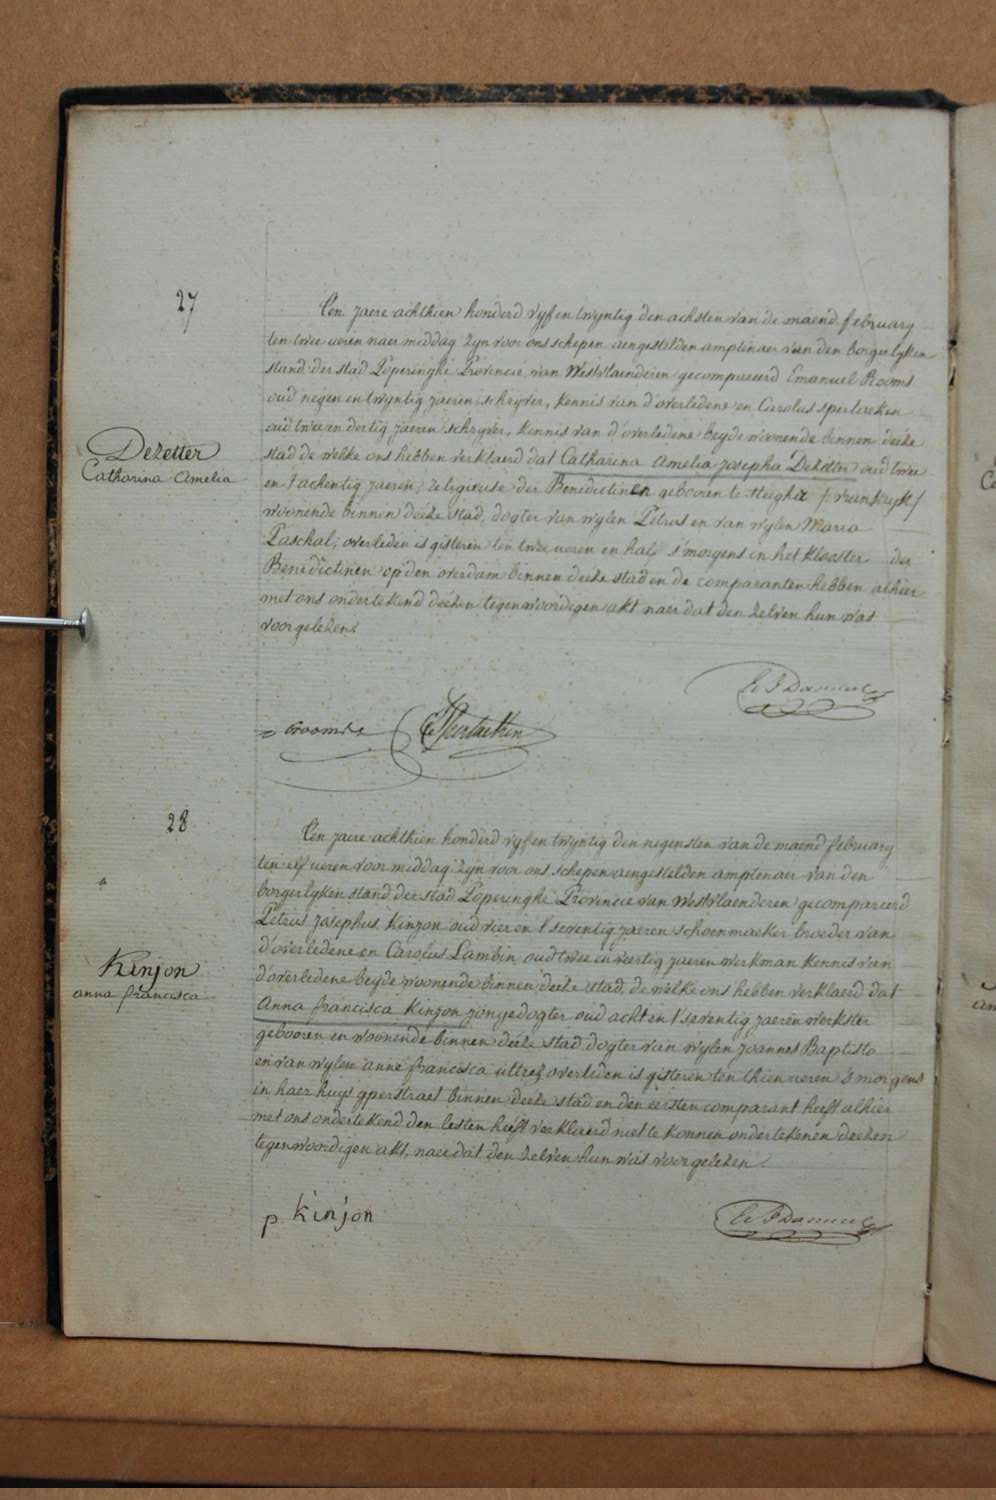 27
Een jaere achthien honderd vyf en twyntig den achsten van de maend february
ten twee ueren naer middag zyn voor ons schepen aengestelden amptenaer van den borgerlyken
stand der stad Poperinghe Provincie van WestVlaenderen gecompareerd Emanuel Rooms
oud negen en twyntig jaeren, schryver, kennis van d'overledene en Carolus Sperlaeken
oud twee en dertig jaeren schryver, kennis van d'overledene beyde woonende binnen deeke
Dezetter
Catharina Amelia
stad de welke ons hebben verklaerd dat Catharina Amelia josepha Dezetter oud twee
en tachentig jaeren, religieuse der Benedictinen gebooren te
woonende binnen deeke stad, dogter van wylen Petrus en van wylen Maria
Paschal, overleden is gisteren ten twee ueren en half s'morgens in het klooster der
Benedictinen op den overdam binnen deeke stad en de comparanten hebben alhier
met ons ondertekend deeken tegenwoordigen akt naer dat den zelven hun was
voorgelezen
Rooms
28
Een jaere achthien honderd vyf en twyntig den negensten van de maend february
ten elf ueren voor middag zyn voor ons schepen aengestelden amptenaer van den
borgerlyken stand der stad Poperinghe Provincie van WestVlaenderen gecompareerd
Petrus Josephus Kinjon oud vier en t'seventig jaeren schoenmaeker broeder van
d'overledene en Carolus Lambin oud twee en veertig jaeren werkman kennis van
Kinjon
anna francisca
d'overledene beyde woonende binnen deeke stad, de welke ons hebben verklaerd dat
Anna francisca Kinjon jonge dogter oud acht en t'seventig jaeren werkster
gebooren en woonende binnen deeke stad dogter van wylen Joannes Baptista
en van wylen anne francisca overleden is gisteren ten thien ueren s'morgens
in haer huys yperstraet binnen deeke stad en den eersten comparant heeft alhier
met ons ondertekend den lesten heeft verklaerd niet te konnen ondertekenen deeken
tegenwoordigen akt, naer dat den zelven hun was voorgelezen.
p kinjon